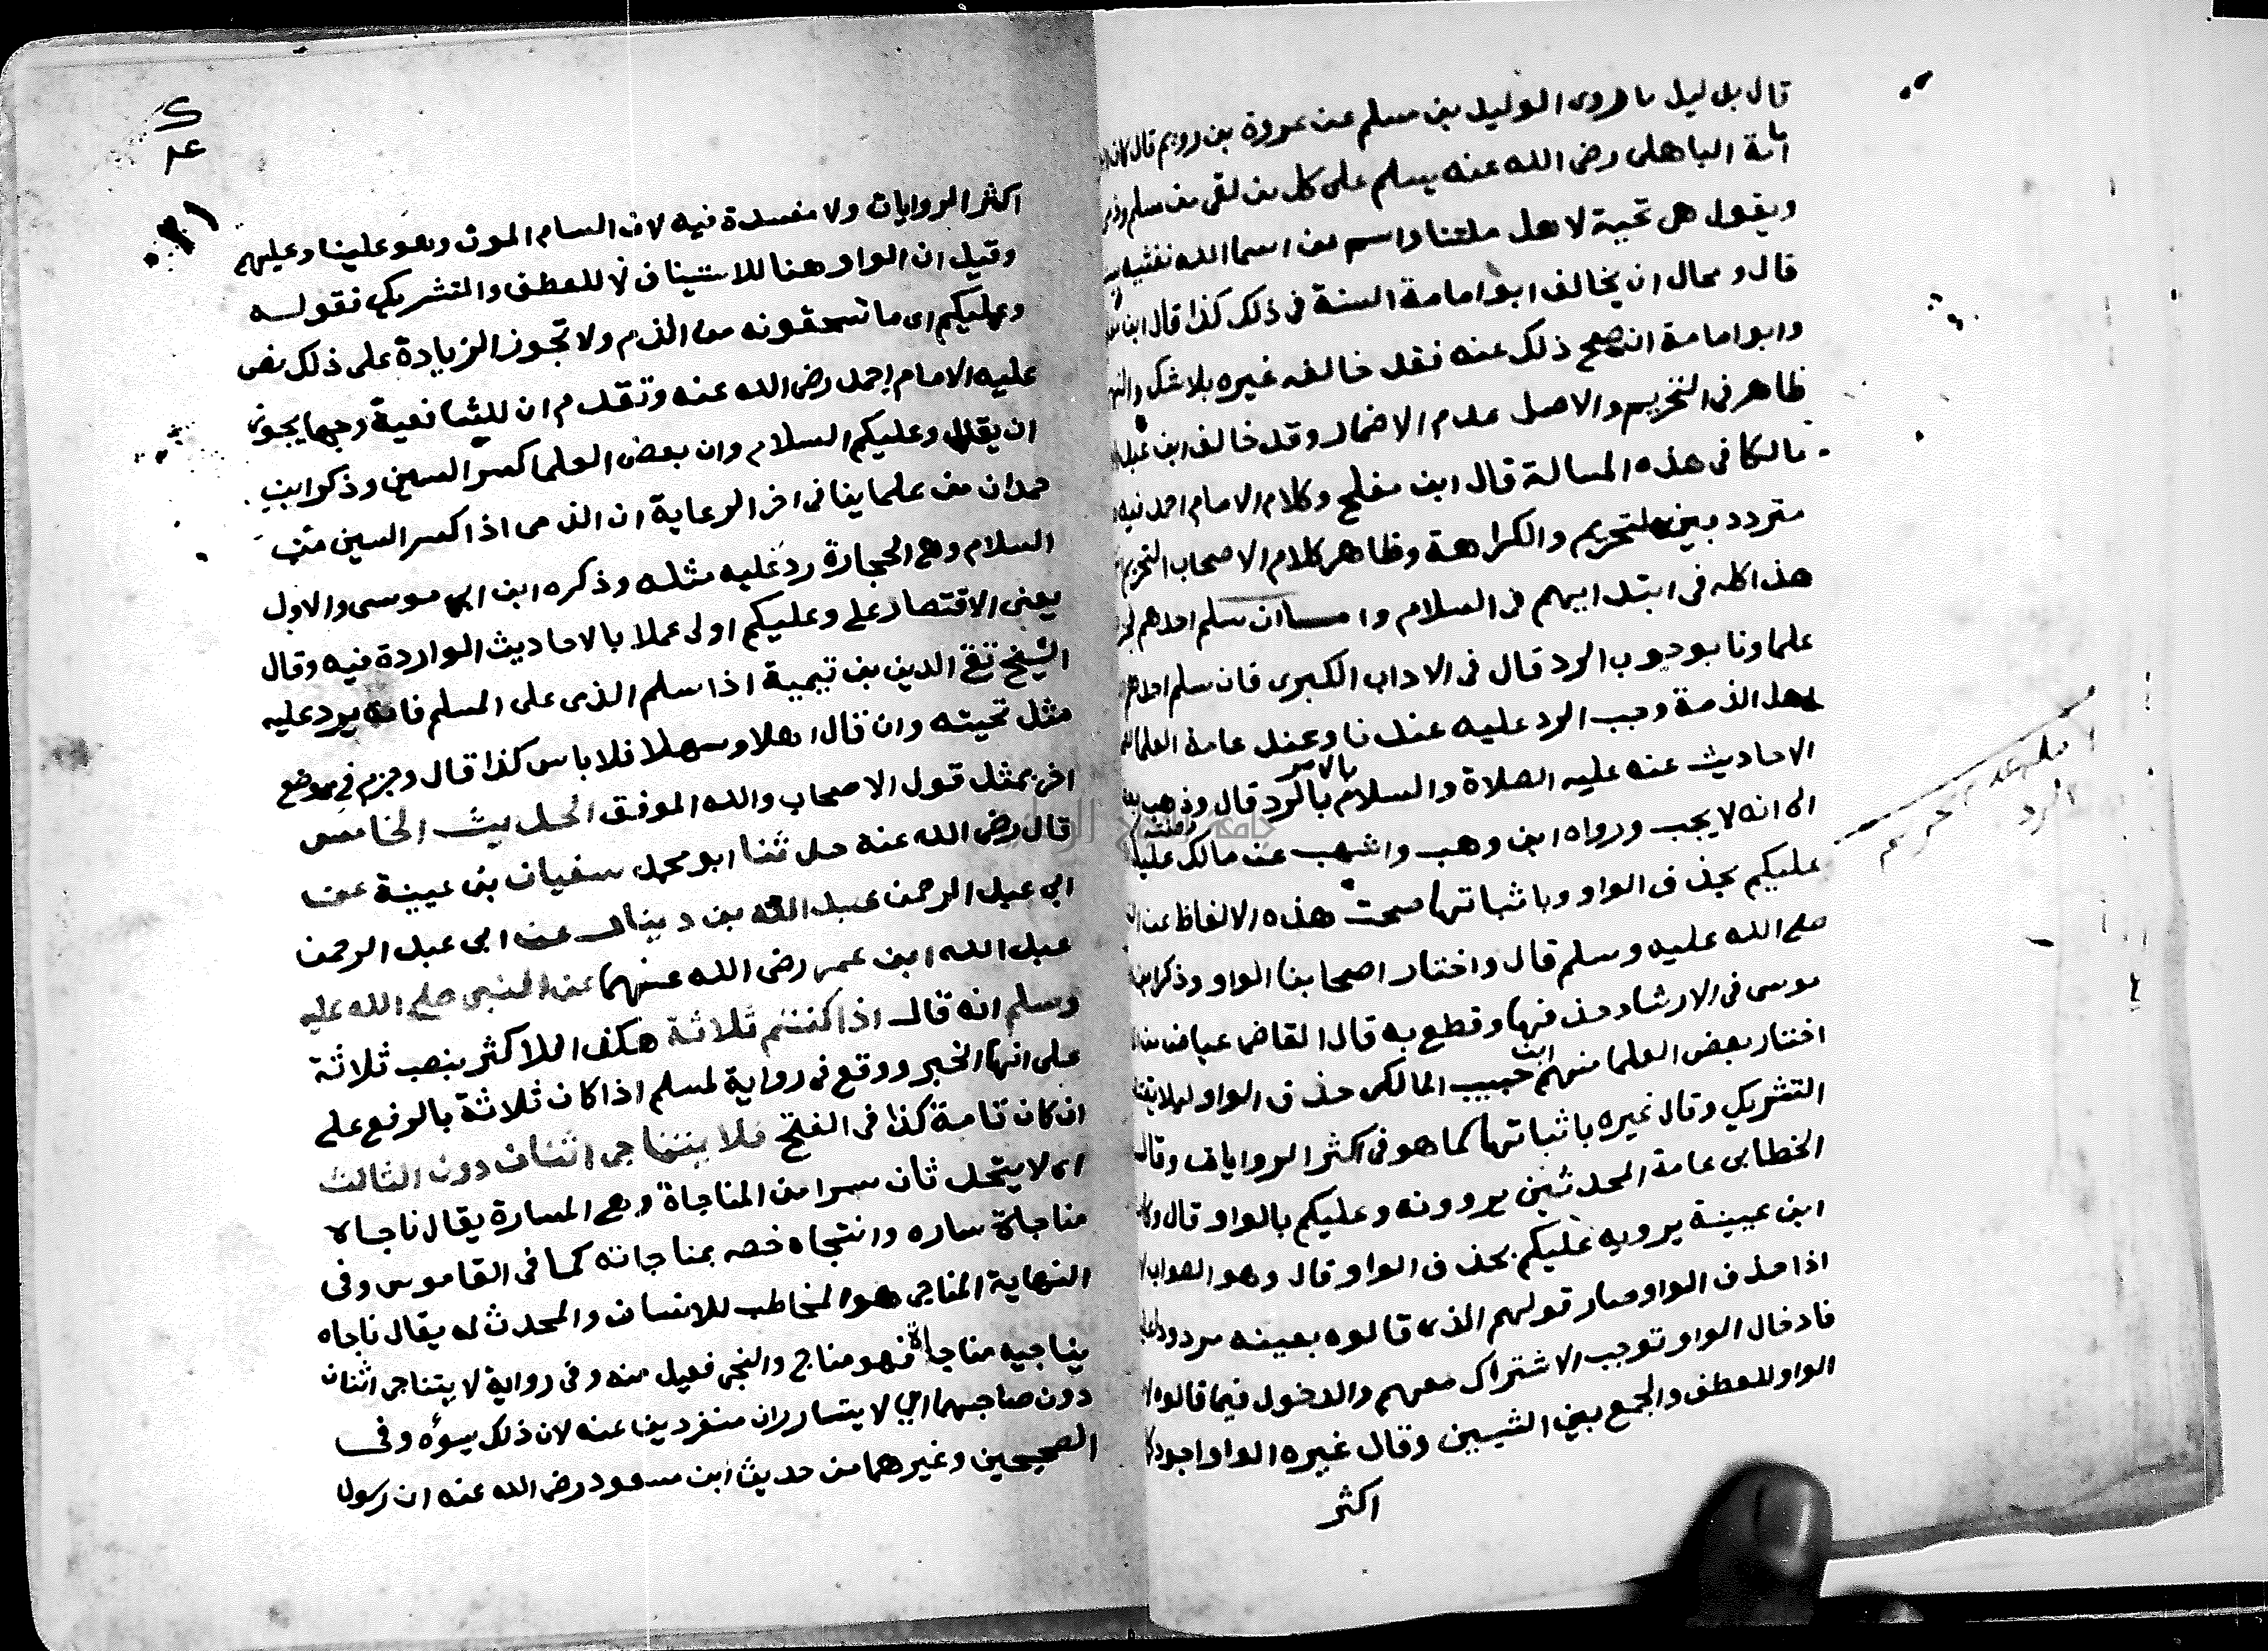 قال بدليل ما روى الوليد بن مسلم عن عروة بن رويم قال كان ابا
امامة الباهلى رضى الله عنه يسلم على كل من لقى من مسلم وذمى
ويقول هى تحية لاهل ملتنا واسم من اسما الله نفشيه
قال ومحال ان يخالف ابو امامة السنة فى ذلك كذا قال ابن
وابو امامة ان صح ذلك عنه فقد خالفه غيره بلا شك والنهى
ظاهر فى التحريم والاصل عدم الاضمار وقد خالف ابن عبد
مالكا فى هذه المسالة قال ابن مفلح وكلام الامام احمد فيه
متردد بين التحريم والكراهة وظاهر كلام الاصحاب التحريم
هذا كله فى ابتدايهم فى السلام واما ان سلم احدهم
علماونا بوجوب الرد قال فى الاداب الكبرى فان سلم احد
اهل الذمة وجب الرد عليه عندنا وعند عامة العلما
الاحاديث عنه عليه الصلاة والسلام بالامر بالرد قال وذهب
الى انه لا يجب ورواه ابن وهب واشهب عن مالك
عليكم بحذف الواو وباثباتها صحت هذه الالفاظ عن
صلى الله عليه وسلم قال واختار اصحابنا الواو وذكر
موسى فى الارشاد حذفها وقطع به قال القاضى عياض
اختار بعض العلما منهم ابن حبيب المالكى حذف الواو ليلا
التشريك وقال غيره باثباتها كما هو فى اكثر الروايات وقال
الخطابى عامة المحدثين يروونه وعليكم بالواو قال وكان
ابن عيينة يرويه عليكم بحذف الواو قال وهو الصواب
اذا حذف الواو صار قولهم الذى قالوه بعينه مردودا
فادخال الواو توجب الاشتراك معهم والدخول فيما قالوه
الواو للعطف والجمع بين الشيين وقال غيره الواو اجود
اكثر
الرد
اكثر الروايات ولا مفسدة فيه لان السام الموت وهو علينا وعليهم
وقيل ان الواو هنا للاستيناف لا للعطف والتشريك فقوله
وعليكم اى ما تستحقونه من الذم ولا تجوز الزيادة على ذلك نص
عليه الامام احمد رضى الله عنه وتقدم ان للشافعية وجها يجوز
ان يقال وعليكم السلام وان بعض العلما كسر السين وذكر ابن
حمدان من علماينا فى اخر الرعاية ان الذمى اذا كسر السين من
السلام وهى الحجارة رد عليه مثله وذكره ابن ابى موسى والاول
يعنى الاقتصار على وعليكم اولى عملا بالاحاديث الواردة فيه وقال
الشيخ تقى الدين بن تيمية اذا سلم الذمى على المسلم فانه يرد عليه
مثل تحيته وان قال اهلا وسهلا فلا باس كذا قال وجزم فى موضع
اخر بمثل قول الاصحاب والله الموفق الحديث الخامس
قال رضى الله عنه حدثنا ابو محمد سفيان بن عيينة عن
ابى عبد الرحمن عبد الله بن دينار عن ابى عبد الرحمن
عبد الله ابن عمر رضى الله عنهما عن النبى صلى الله عليه
وسلم انه قال اذا كنتم ثلاثة هكذا للاكثر بنصب ثلاثة
على انها الخبر ووقع فى رواية لمسلم اذا كان ثلاثة بالرفع على
ان كان تامة كذا فى الفتح فلا يتناجى اثنان دون الثالث
اى لا يتحدثان سرا من المناجاة وهى المسارة يقال ناجاه
مناجاة ساره وانتجاه خصه بمناجاته كما فى القاموس وفى
النهاية المناجى هو المخاطب للانسان والمحدث له يقال ناجاه
يناجيه مناجاة فهو مناج والنجى فعيل منه وفى رواية لا يتناجى اثنان
دون صاحبهما اى لا يتساران منفردين عنه لان ذلك يسوءه وفى
الصحيحين وغيرهما من حديث ابن مسعود رضى الله عنه ان رسول